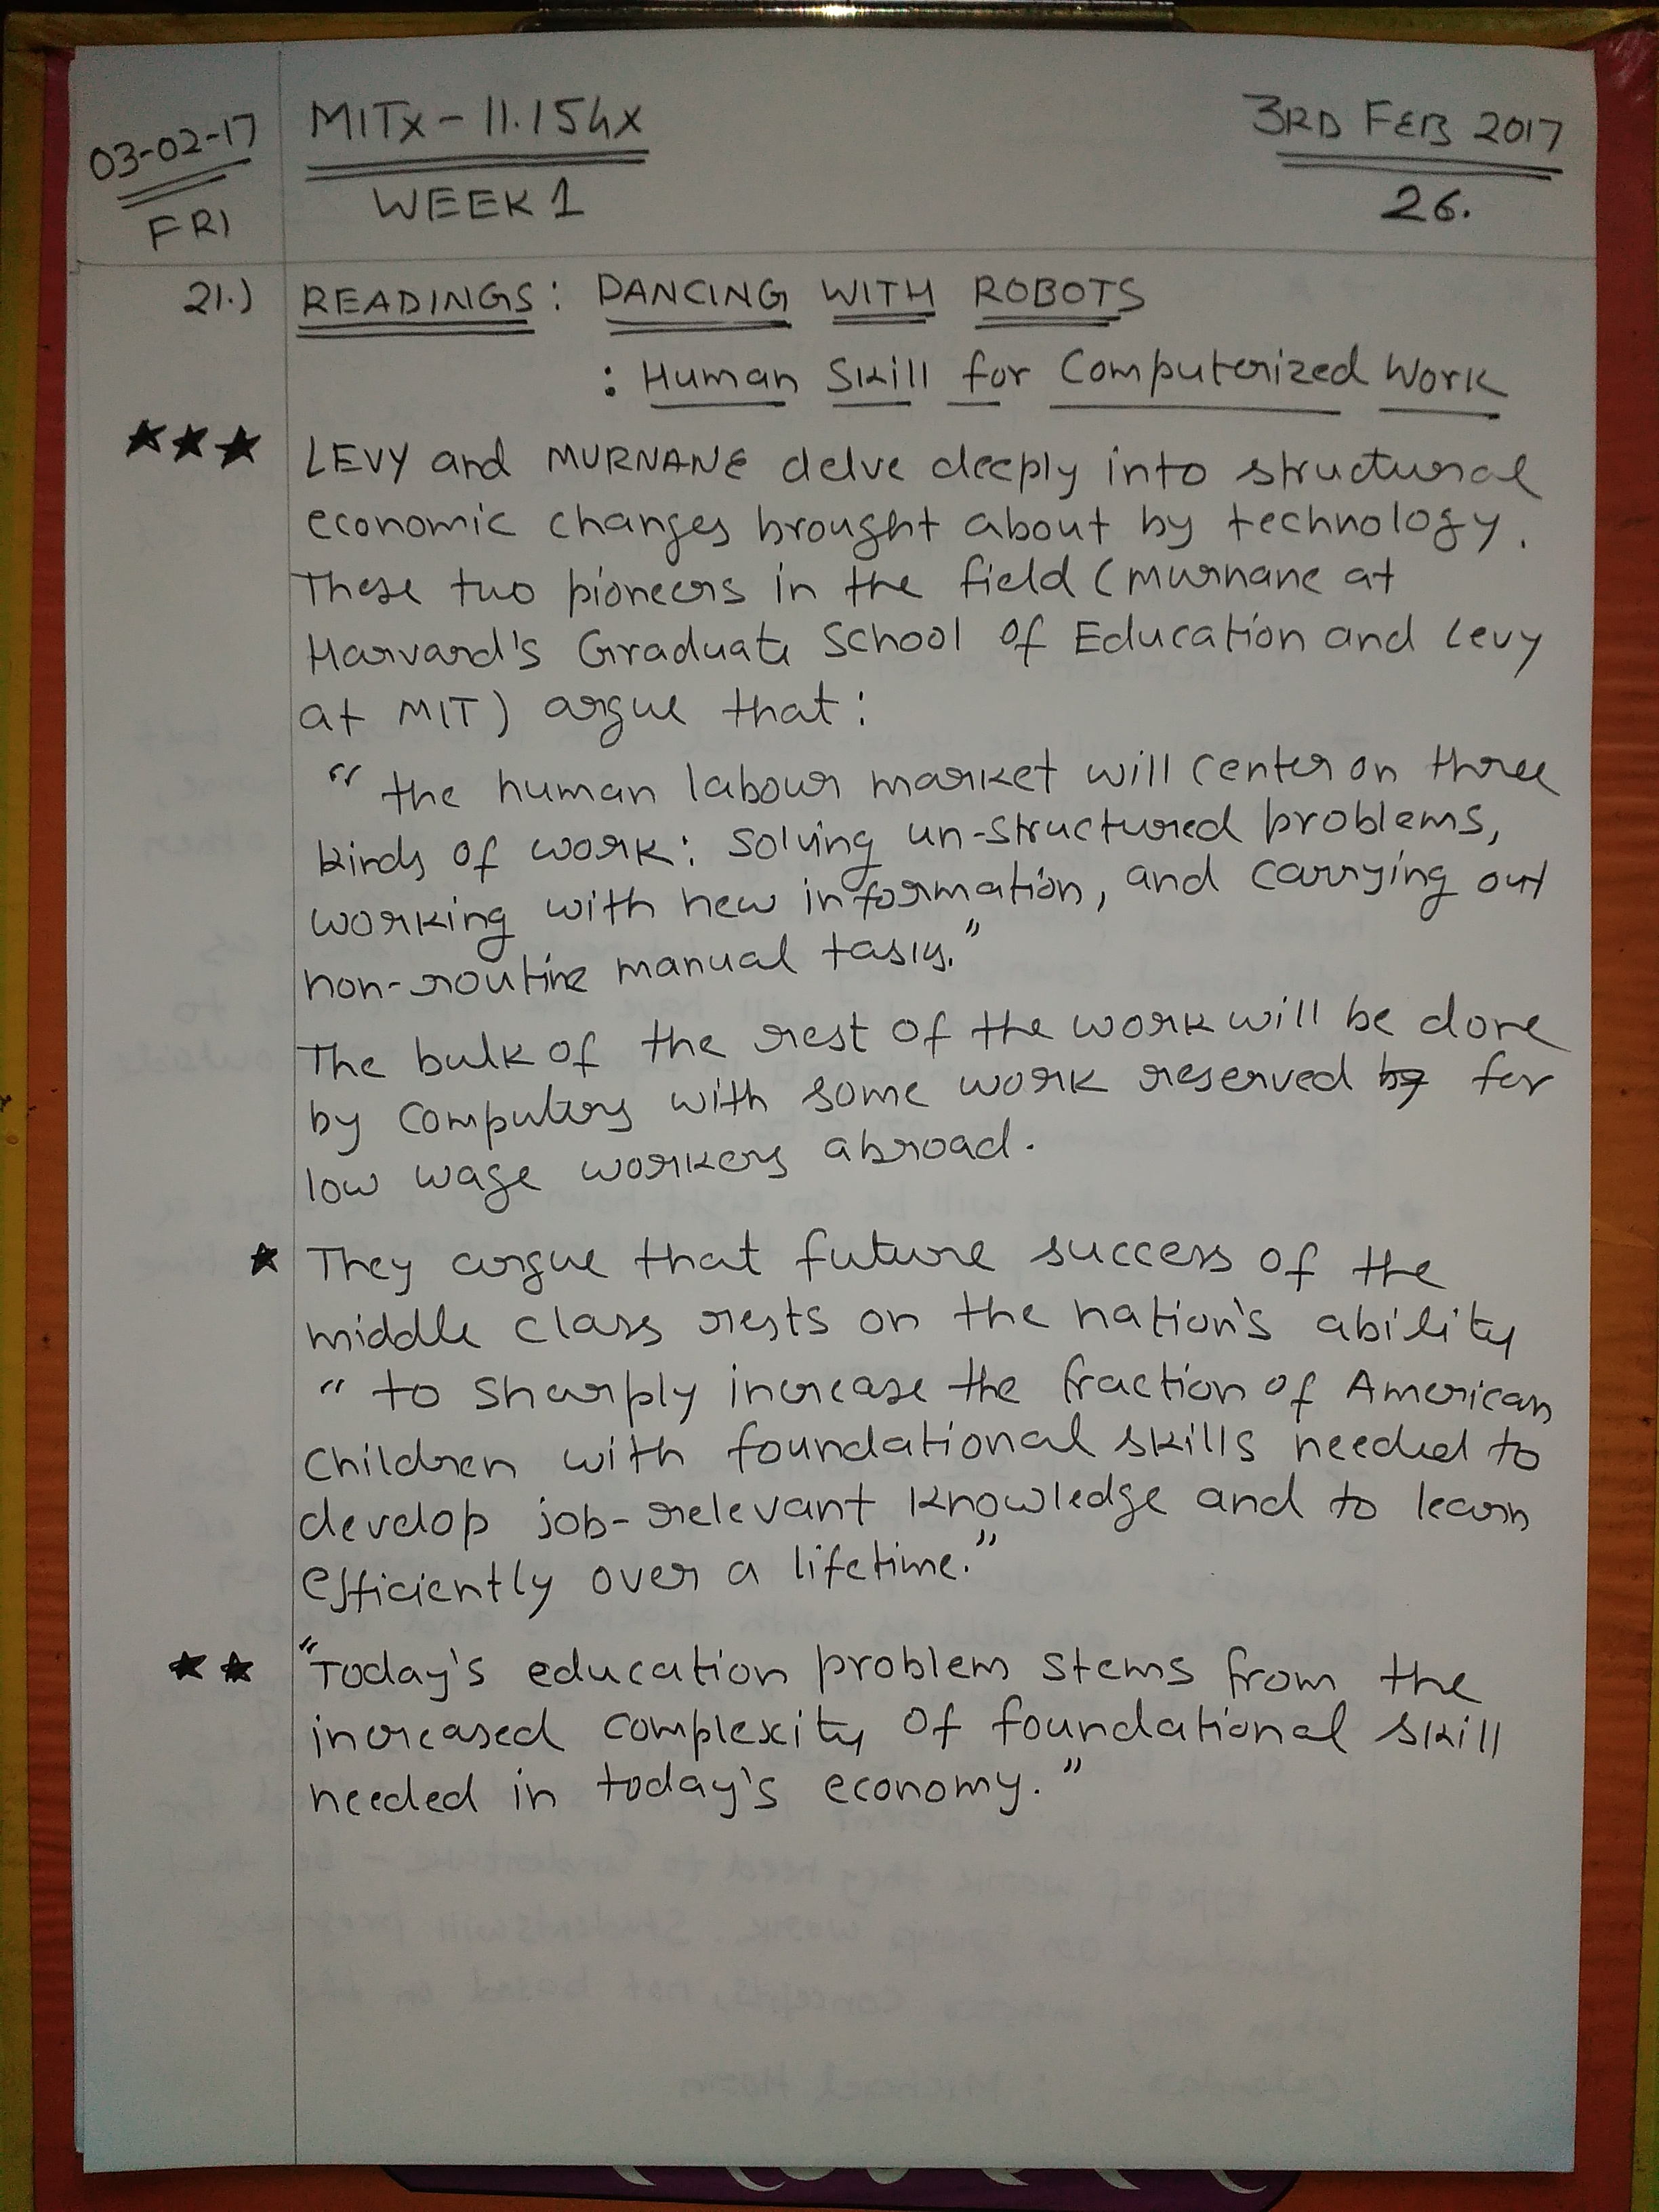 03-02-17
FRI
MITx - 11.154x
WEEK 1
3RD FEB 2017
26.
21.) READINGS: DANCING WITH ROBOTS
: Human Skill for Computerized Work
★★★ LEVY and MURNANE delve deeply into structural
economic changes brought about by technology.
These two pioneers in the field (Murnane at
Harvard's Graduate School of Education and Levy
at MIT) argue that:
"the human labour market will center on three
kinds of work: solving un-structured problems,
working with new information, and carrying out
non-routine manual tasks."
The bulk of the rest of the work will be done
by computers with some work reserved by for
low wage workers abroad.
★ They argue that future success of the
middle class rests on the nation's ability
"to sharply increase the fraction of American
children with foundational skills needed to
develop job-relevant knowledge and to learn
efficiently over a lifetime."
★★ "Today's education problem stems from the
increased complexity of foundational skill
needed in today's economy."